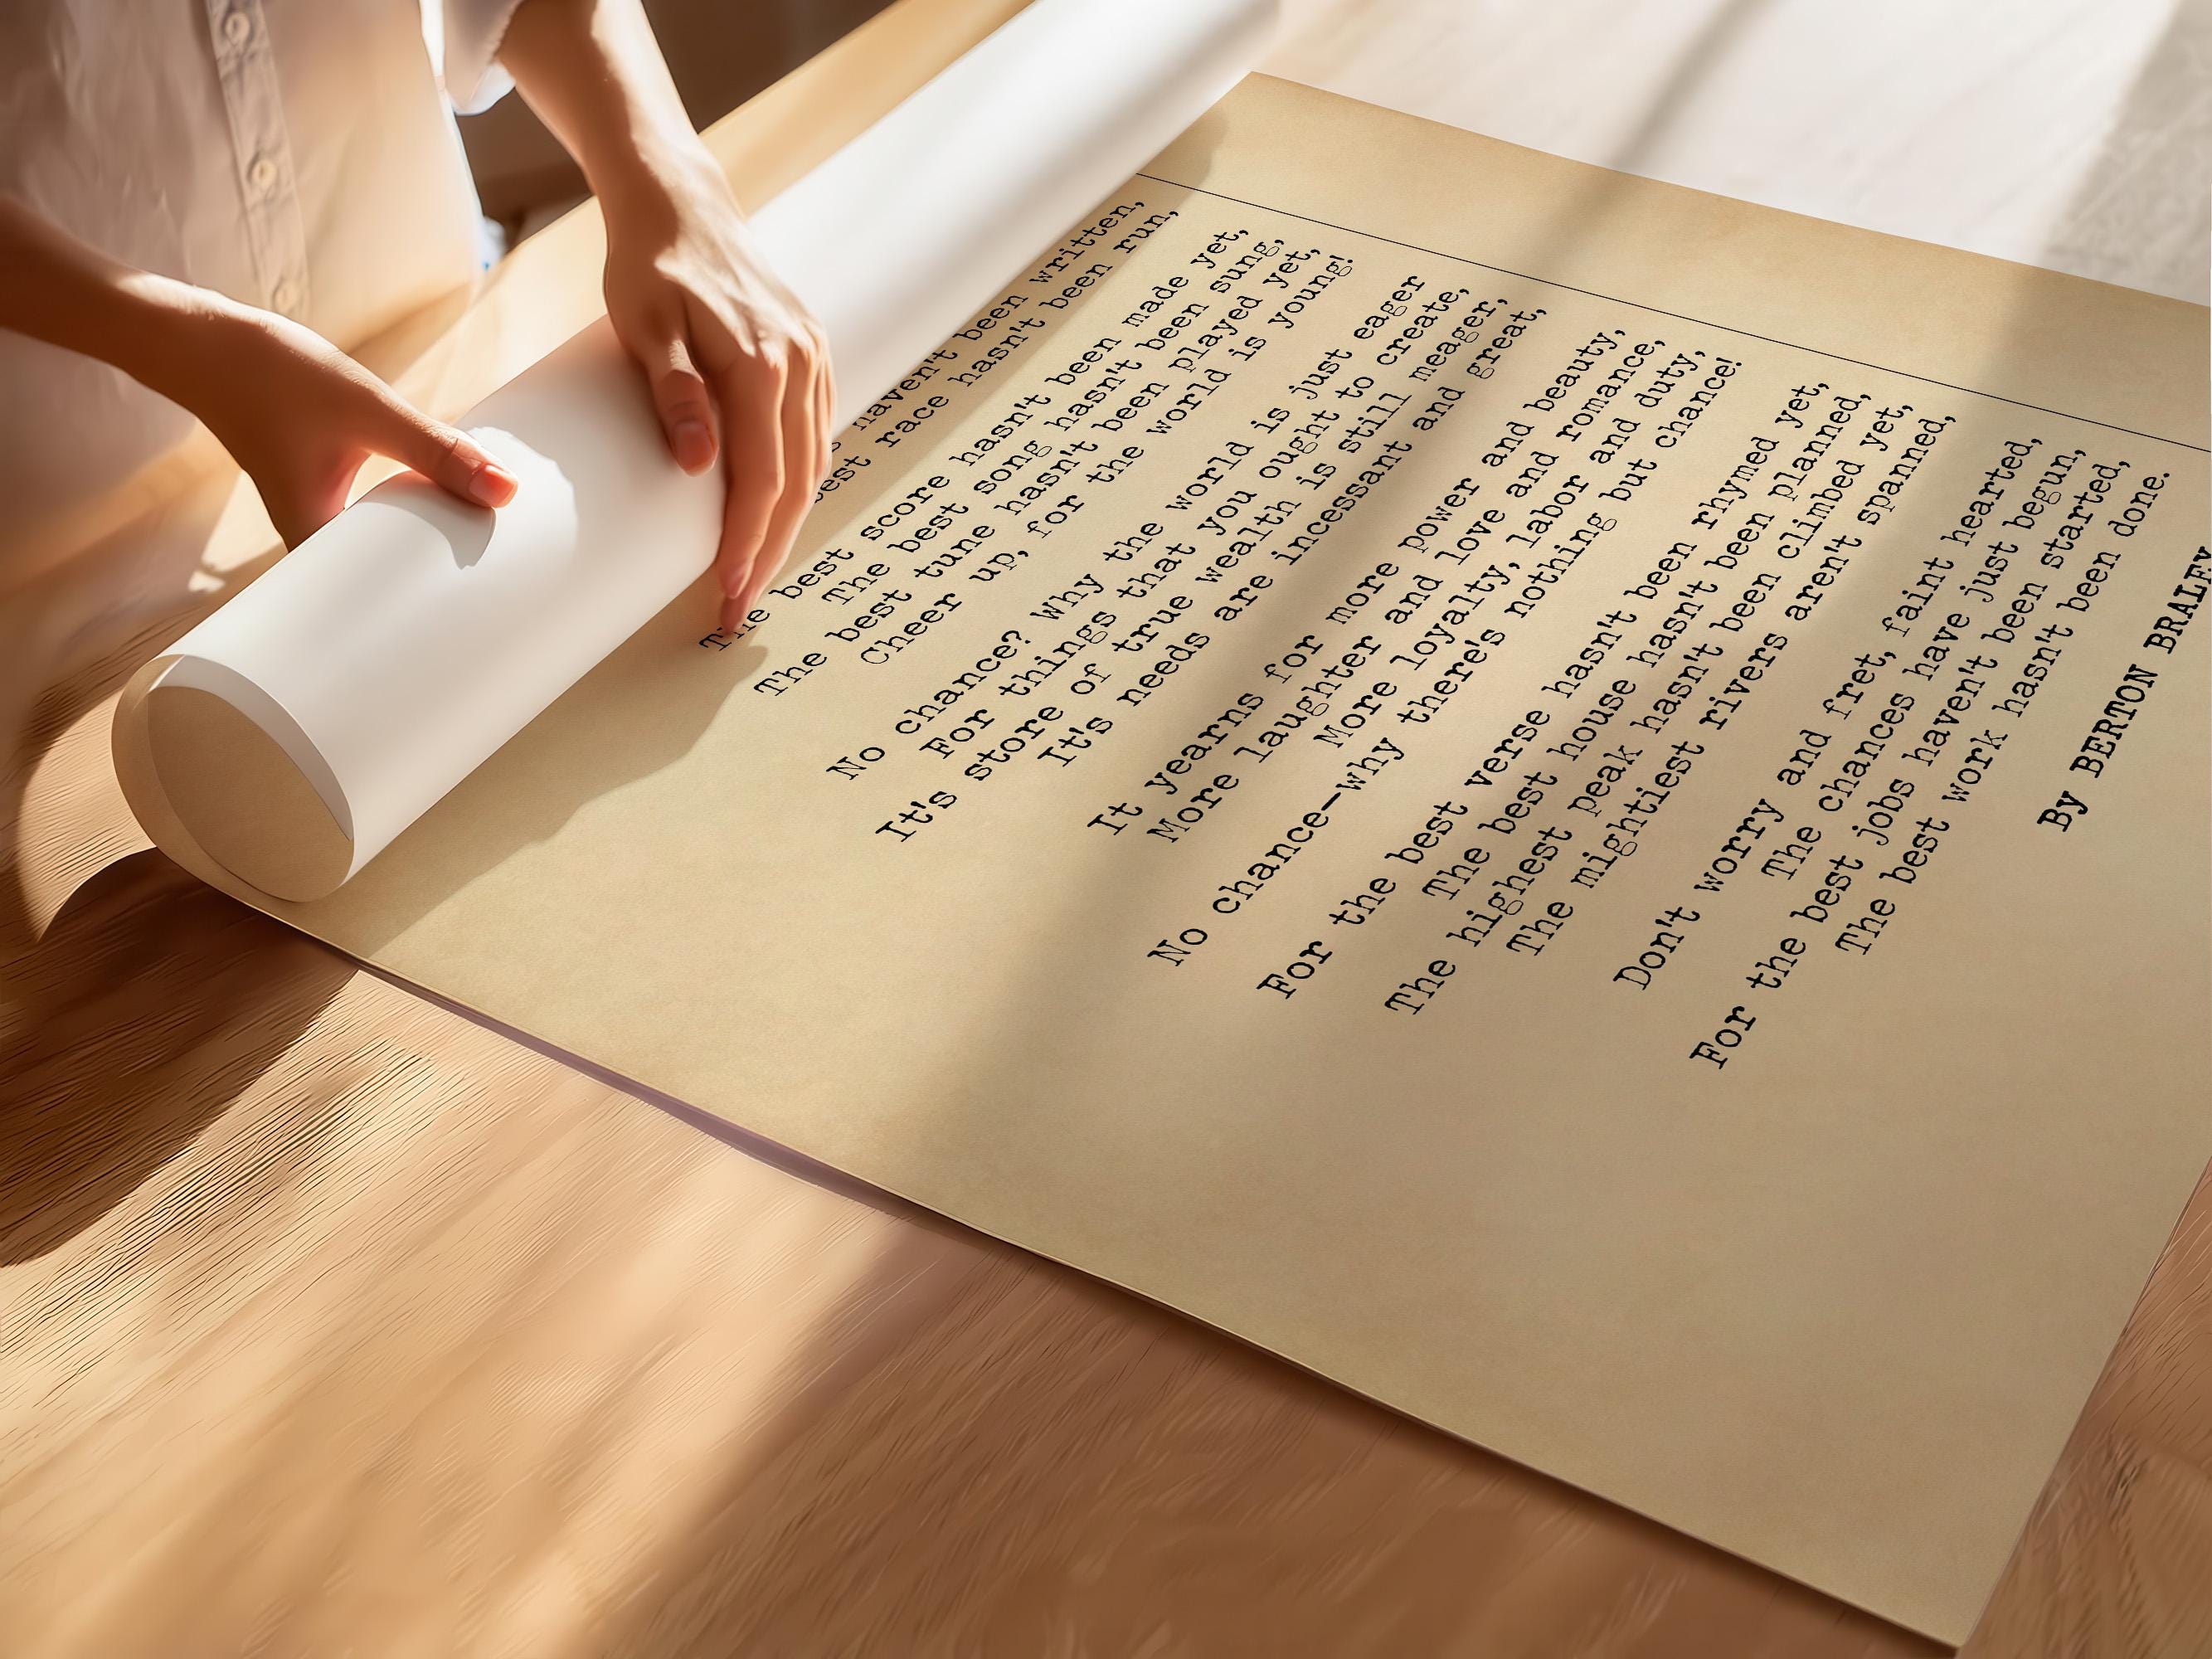 haven't been written,
best race hasn't been run,
The best score hasn't been made yet,
The best song hasn't been sung,
The best tune hasn't been played yet,
Cheer up, for the world is young!
No chance? Why the world is just eager
For things that you ought to create,
It's store of true wealth is still meager,
It's needs are incessant and great,
It yearns for more power and beauty,
More laughter and love and romance,
More loyalty, labor and duty,
No chance—why there's nothing but chance!
For the best verse hasn't been rhymed yet,
The best house hasn't been planned,
The highest peak hasn't been climbed yet,
The mightiest rivers aren't spanned,
Don't worry and fret, faint hearted,
The chances have just begun,
For the best jobs haven't been started,
The best work hasn't been done.
By BERTON BRALEY